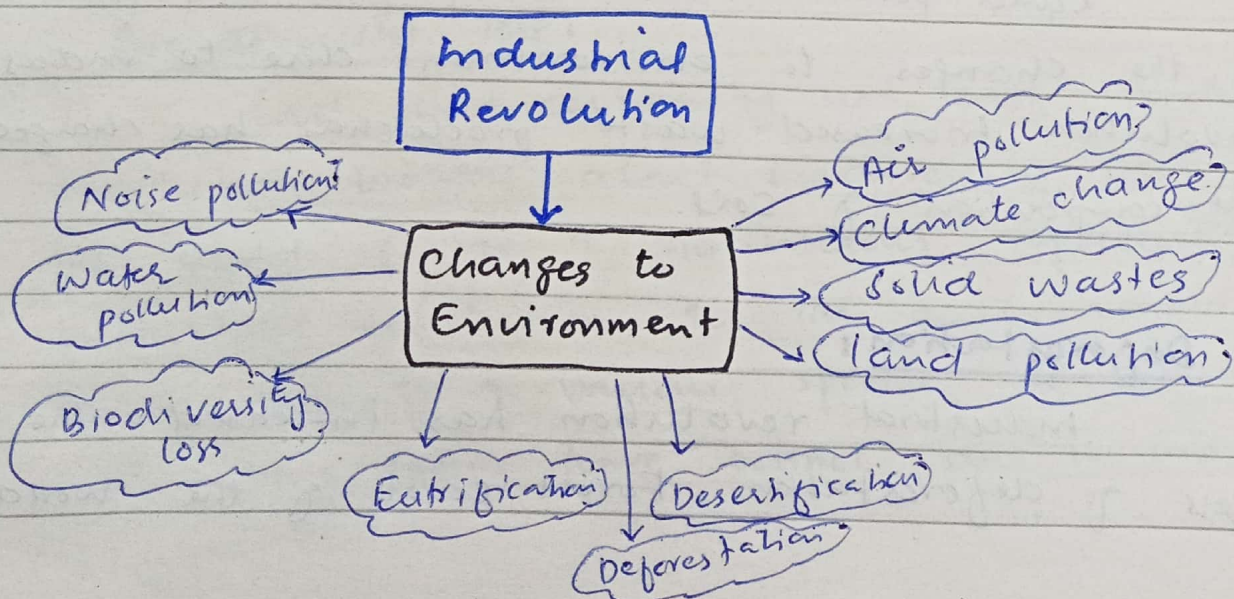 Industrial
Revolution
Changes to
Environment
Noise pollution
Water
pollution
Biodiversity
loss
Eutrification
Deforestation
Desertification
Air pollution
Climate change
Solid wastes
land pollution